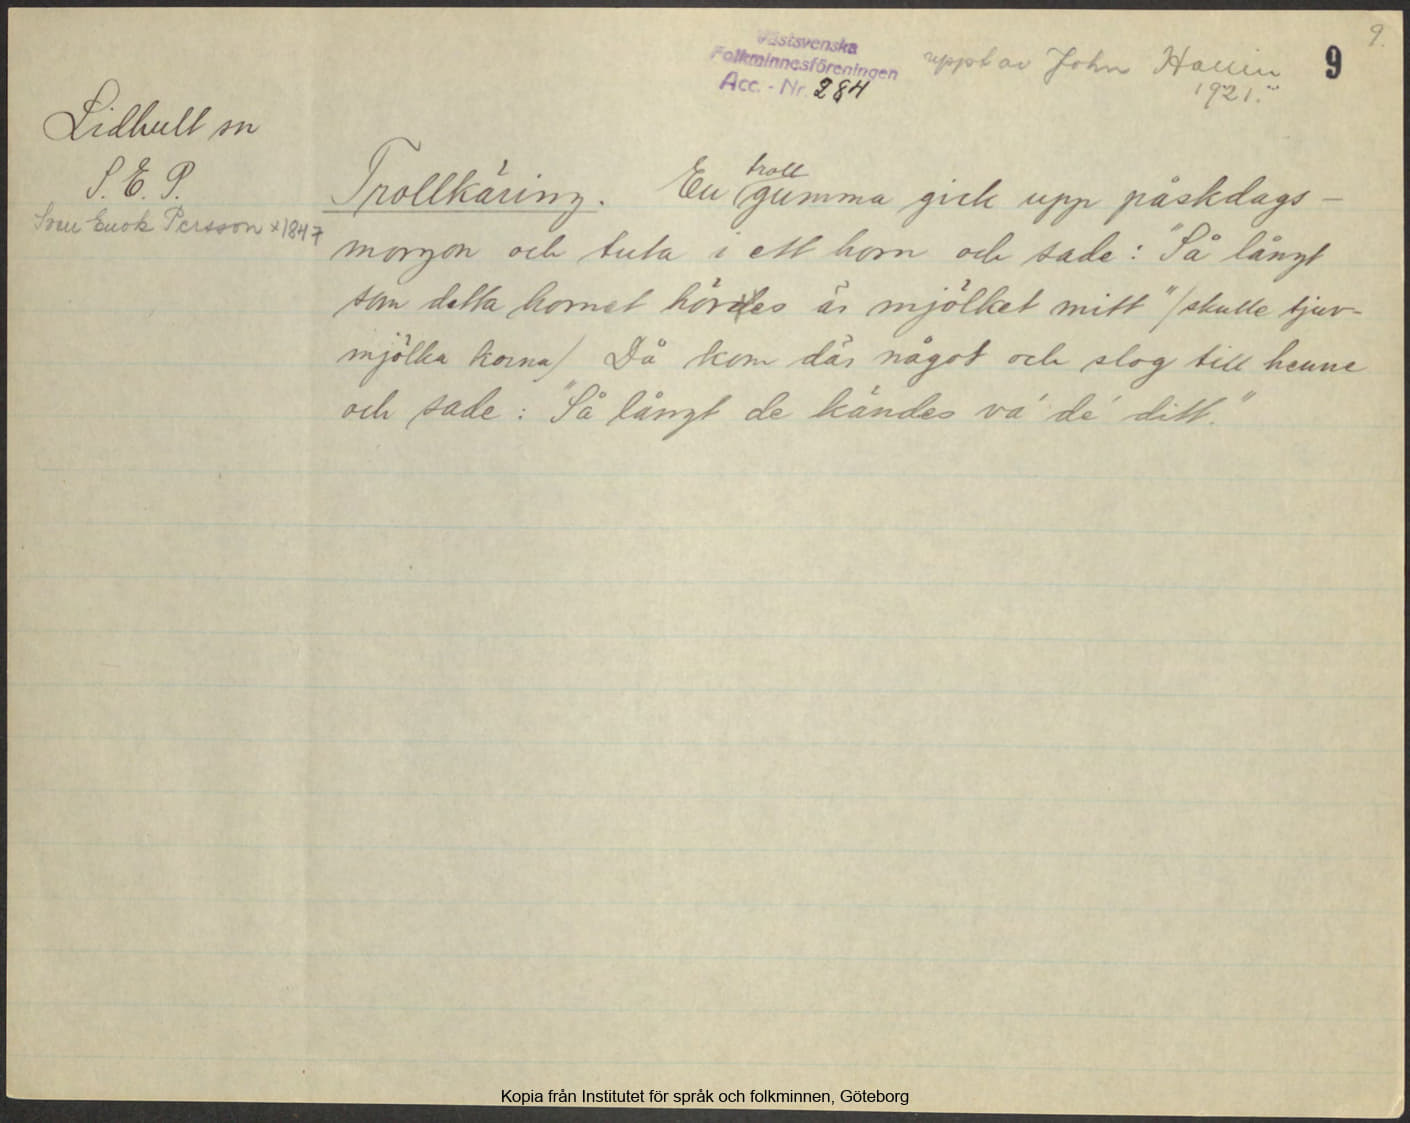 9.
Västsvenska
Folkminnesföreningen
Acc. - Nr. 284
uppt av John
1921.
9
Lidhult sn
S. E. P.
Sven Enok Persson *1847
Trollkäring. En trollgumma gick upp påskdags-
morgon och tuta i ett horn och sade: "Så långt
som detta hornet höres är mjölket mitt" /skulle tjuv-
mjölka korna/ Då kom där något och slog till henne
och sade: "Så långt de kändes va' de' ditt."
Kopia från Institutet för språk och folkminnen, Göteborg